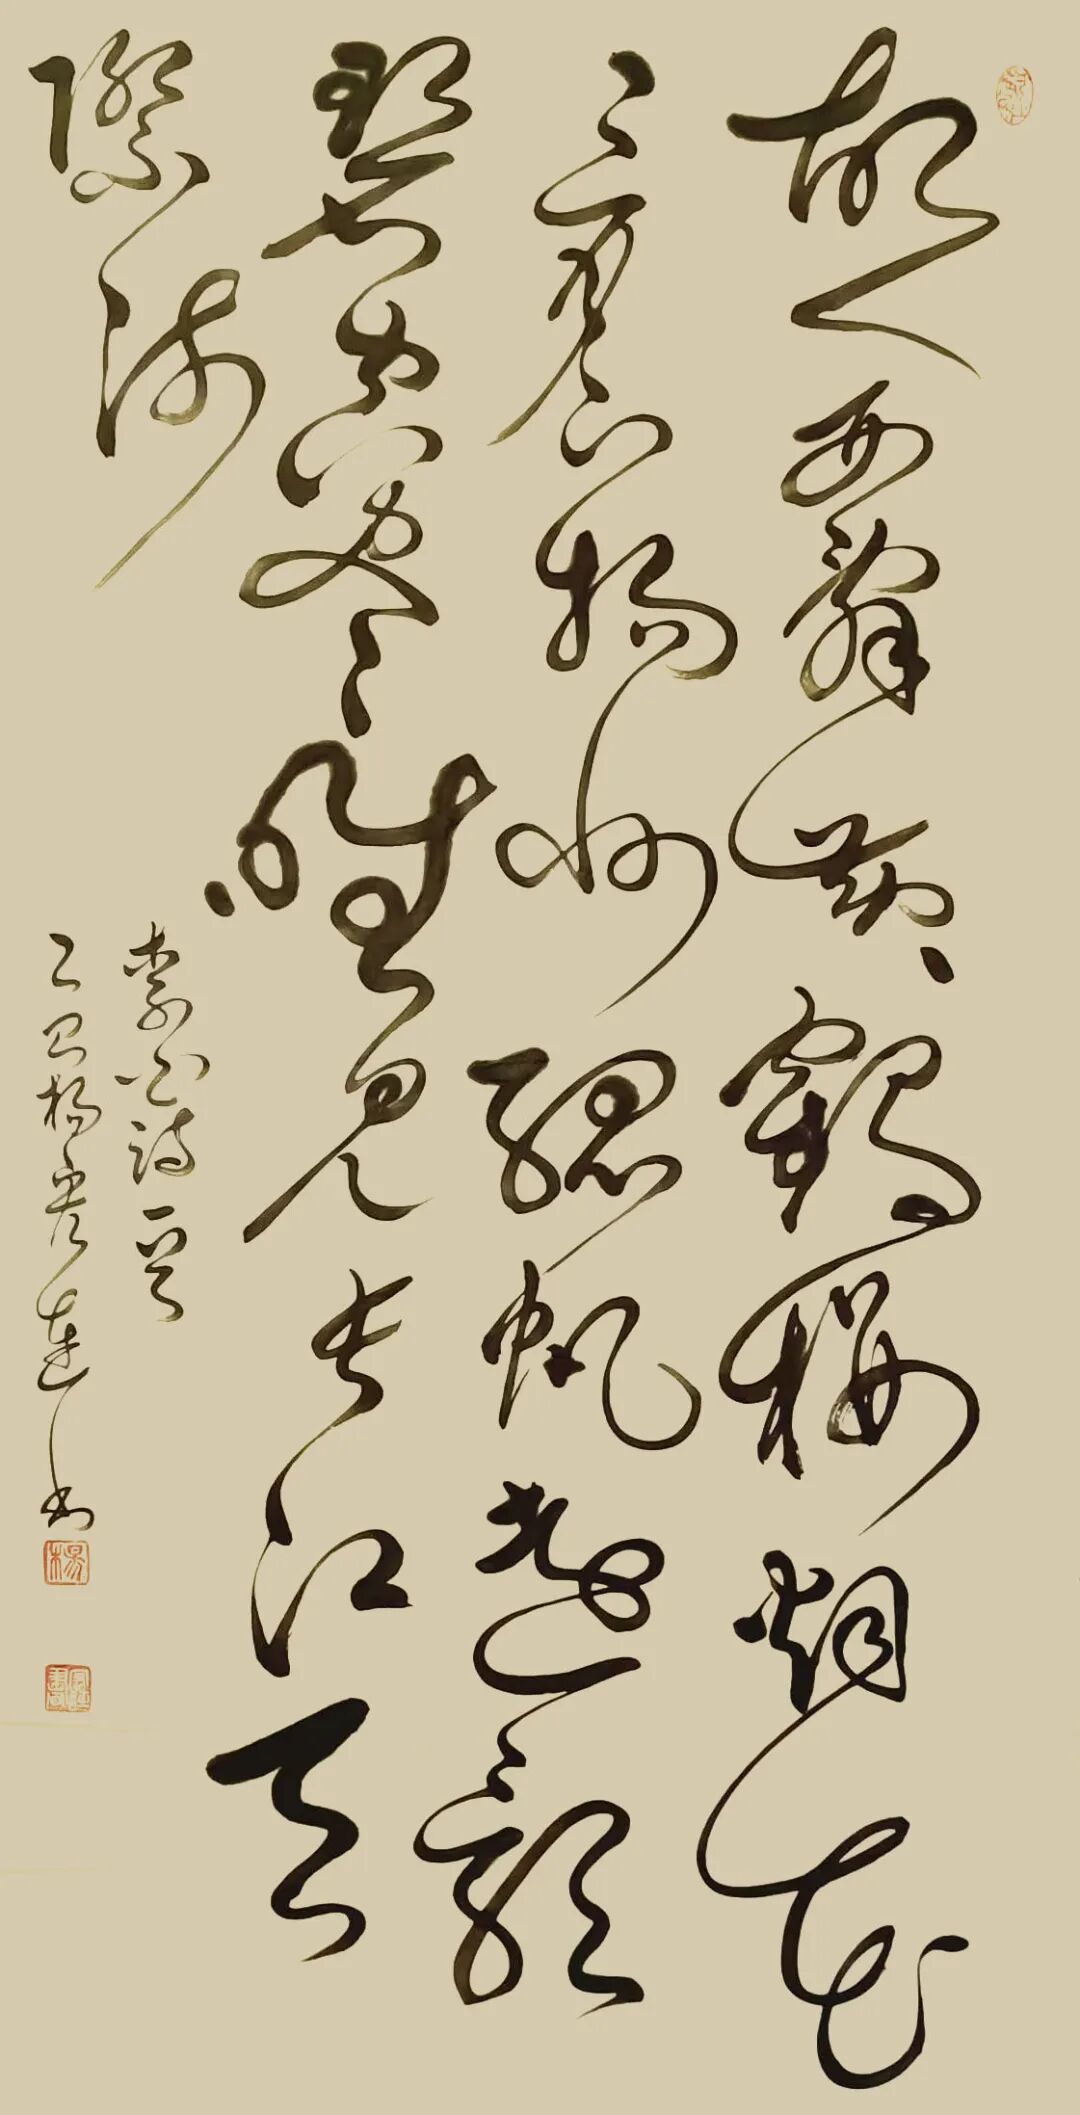 故人西辭黃鶴樓烟花
三月下揚州孤帆遠影
碧空盡唯見長江天
際流
李白詩一首
乙巳楊書
楊